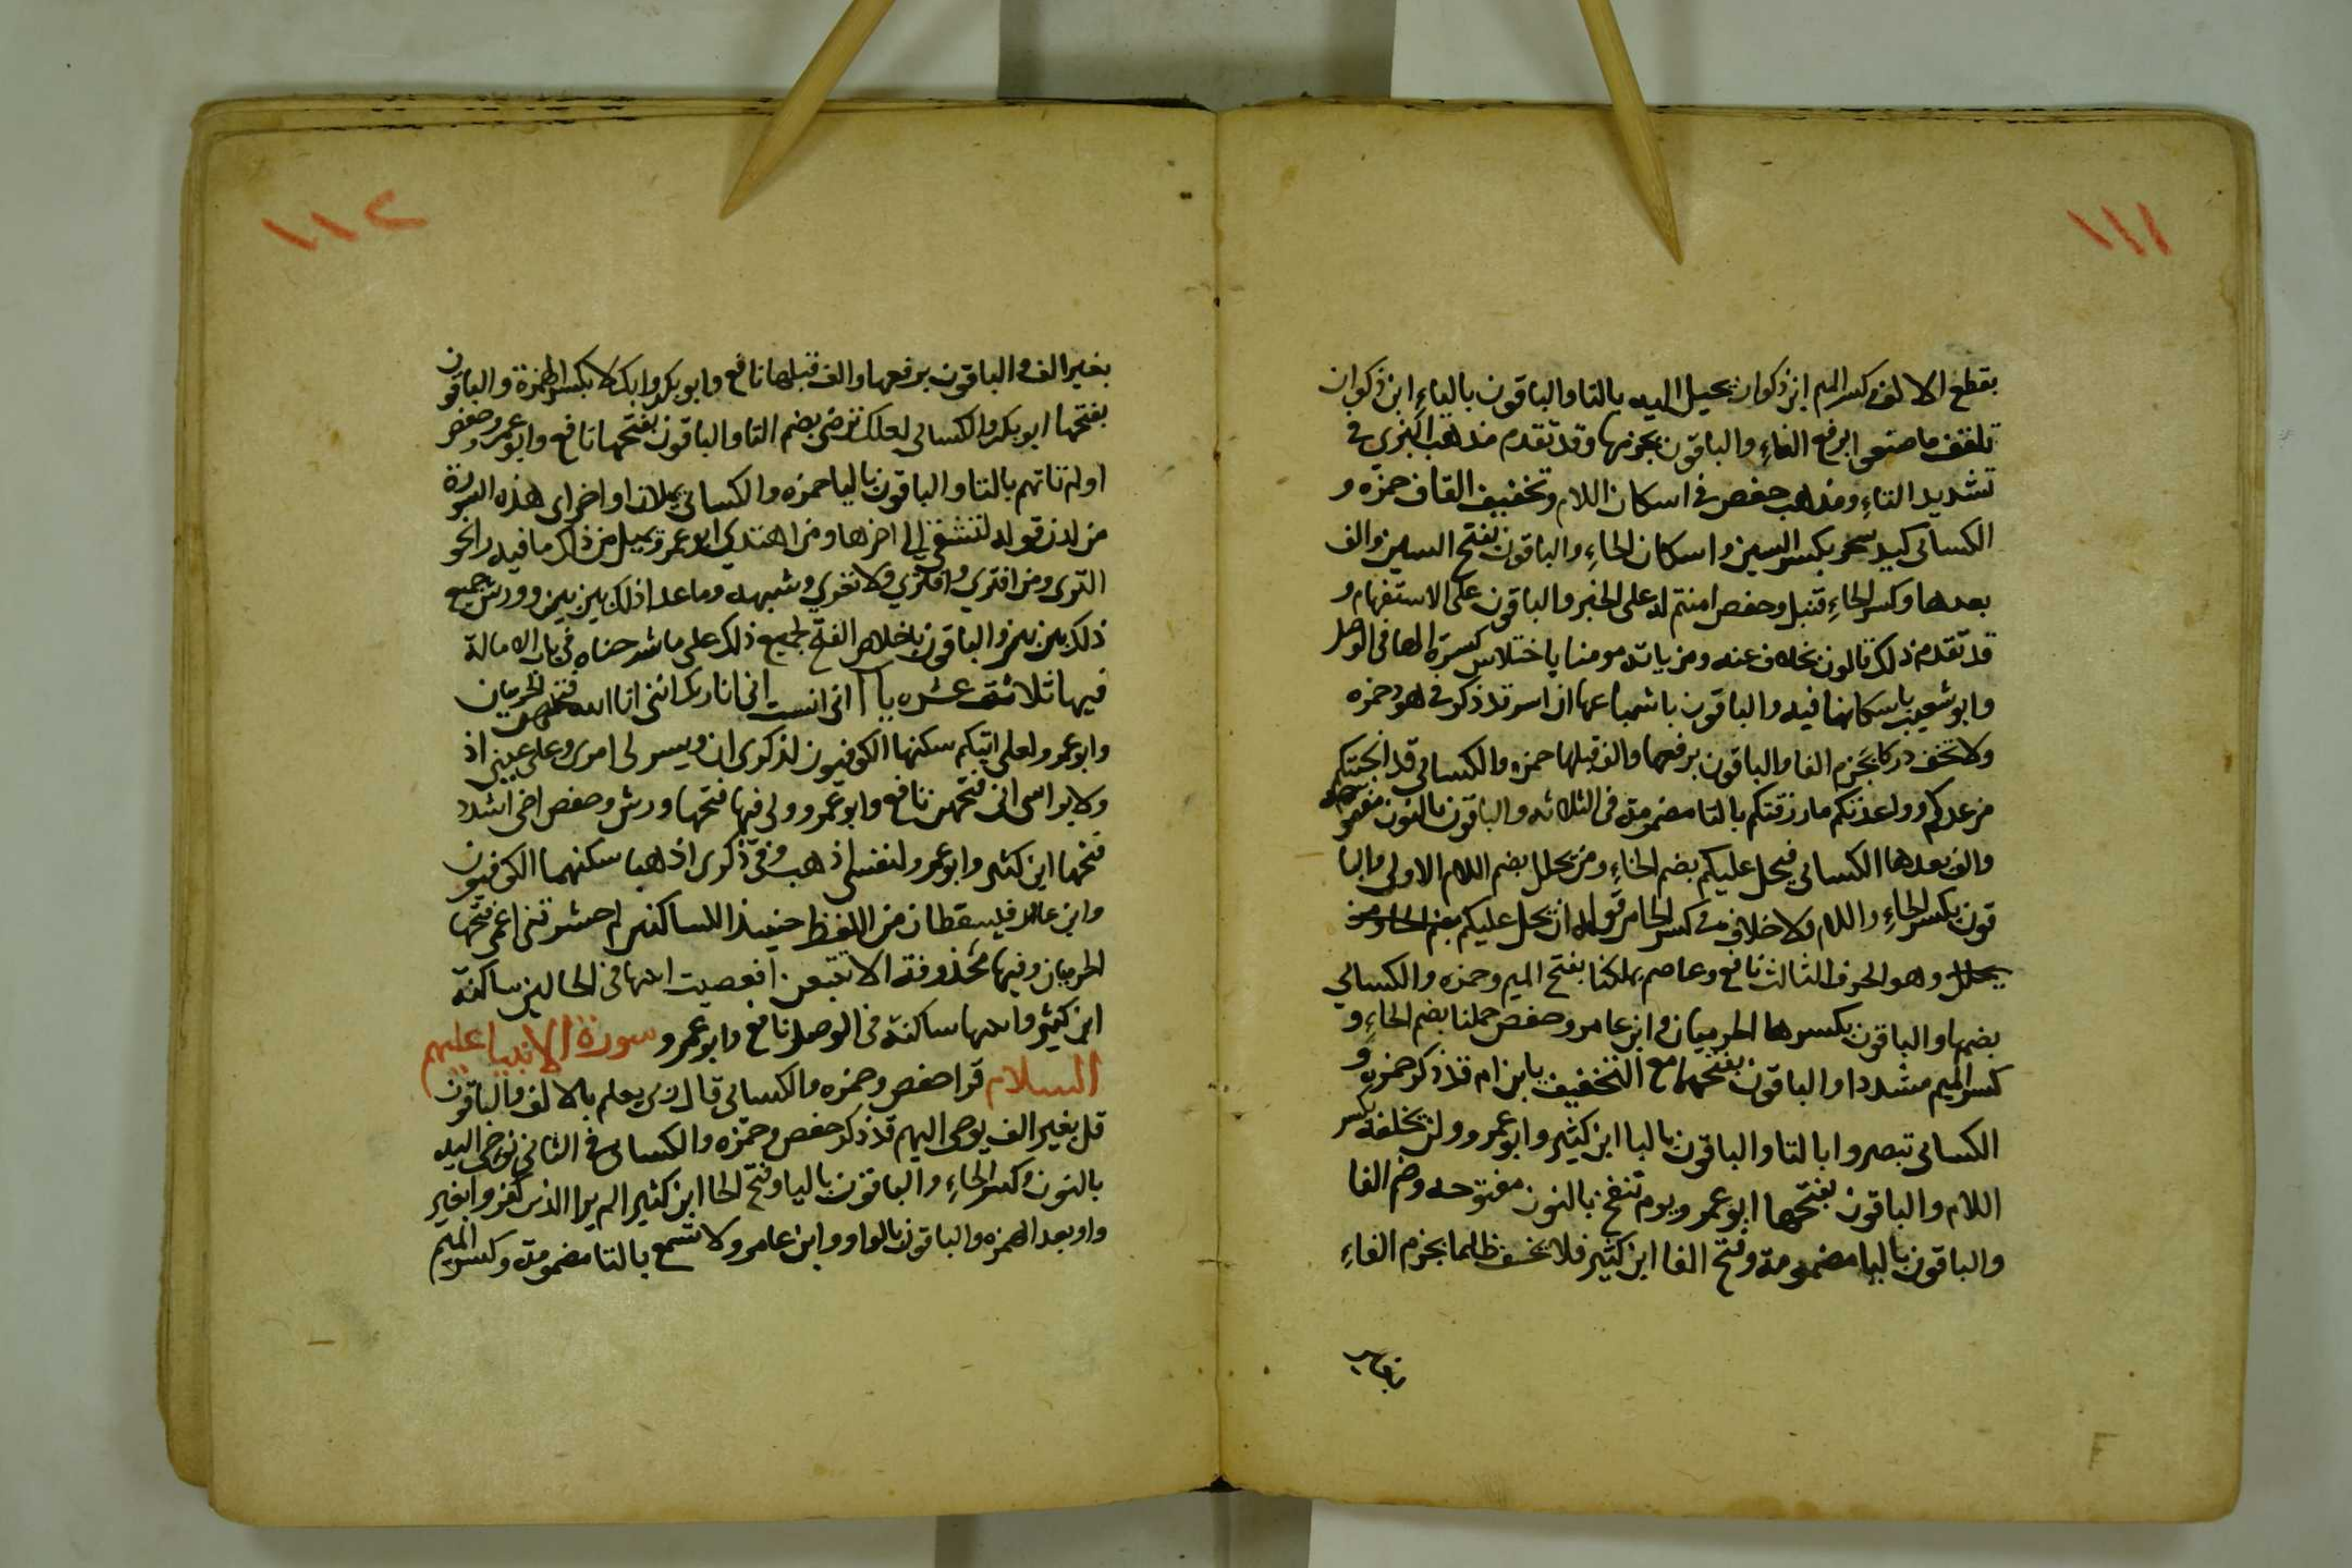 ١١١
بقطع الالف وكسر الميم ابن ذكوان تخيل اليه بالتا والباقون بالياءِ ابن ذكوان
تلقف ما صنعوا برفع الفاءِ والباقون بجزمها وقد تقدم مذهب البزي في
تشديد التاءِ ومذهب حفص في اسكان اللام وتخفيف القاف حمزه و
الكسائي كيد سحر بكسر السين واسكان الحاءِ والباقون بفتح السين والف
بعدها وكسر الحاءِ قنبل وحفص امنتم له على الخبر والباقون على الاستفهام و
قد تقدم ذلك قالون بخلاف عنه ومن ياته مومنا باختلاس كسرة الها في الوصل
وابو شعيب باسكانها فيه والباقون باشباعها ان اسر قد ذكر في هود حمزه
ولا تخف دركا بجزم الفا والباقون برفعها والف قبلها حمزه والكسائي قد انجيتكم
من عدوكم وواعدتكم ما رزقتكم بالتا مضمومة في الثلاثه والباقون بالنون مفتوحه
والف بعدها الكسائي فيحل عليكم بضم الحاءِ ومن يحلل بضم اللام الاولى والبا
قون بكسر الحاءِ واللام ولا خلاف في كسر الحا من قوله ان يحل عليكم
وهو الحرف الثالث نافع وعاصم بملكنا بفتح الميم وحمزه والكسائي
بضمها والباقون بكسرها الحرميان وابن عامر وحفص حملنا بضم الحاءِ و
كسر الميم مشددا والباقون بفتحهما مع التخفيف يابن ام قد ذكر حمزه و
الكسائي تبصروا بالتا والباقون بالبا ابن كثير وابو عمرو ولن تخلفه بكسر
اللام والباقون بفتحها ابو عمرو يوم ننفخ بالنون مفتوحه وضم الفا
والباقون باليا مضمومة وفتح الفا ابن كثير فلا يخف ظلما بجزم الفاءِ
١١٢
بغير الف والباقون برفعها والف قبلها نافع وابو بكر وانك لا بكسر الهمزة والباقون
بفتحها ابو بكر والكسائي لعلك ترضى بضم التا والباقون بفتحها نافع وابو عمرو وحفص
اولم تاتهم بالتا والباقون باليا حمزه والكسائي يميلان اواخر اى هذه السورة
من لدن قوله لتشقى الى اخرها ومن اهتدي ابو عمرو يميل من ذلك ما فيه را نحو
الثرى ومن افتري ولا تعري وشبهه وما عدا ذلك بين بين وورش جميع
ذلك بين بين والباقون باخلاص الفتح لجميع ذلك على ما شرحناه في باب الامالة
فيها ثلاث عشره يا انى انست انى انا ربك اننى انا الله فتحهن الحرميان
وابو عمرو لعلى اتيكم سكنها الكوفيون لذكرى ان ويسر لى امرى وعلى عينى اذ
ولا براسى انى فتحهن نافع وابو عمرو ولى فيها فتحها ورش وحفص اخى اشدد
فتحها ابن كثير وابو عمرو لنفسى اذهب وفى ذكرى اذهبا سكنهما الكوفيون
وابن عامر فيسقطان من اللفظ حينئذ للساكنين لم حشرتنى اعمى فتحها
الحرميان وفيها محذوفة الا تتبعن افعصيت اثبتها فى الحالين ساكنة
ابن كثير واثبتها ساكنة فى الوصل نافع وابو عمرو سورة الانبيا عليهم
السلام قرا حفص وحمزه والكسائي قال ربى يعلم بالالف والباقون
قل بغير الف يوحى اليهم قد ذكر حفص وحمزه والكسائى فى الثاني نوحى اليه
بالنون وكسر الحاءِ والباقون باليا وفتح الحا ابن كثير الم ير الذين كفروا بغير
واو بعد الهمزه والباقون بالواو وابن عامر ولا تسمع بالتا مضمومة وكسر الميم